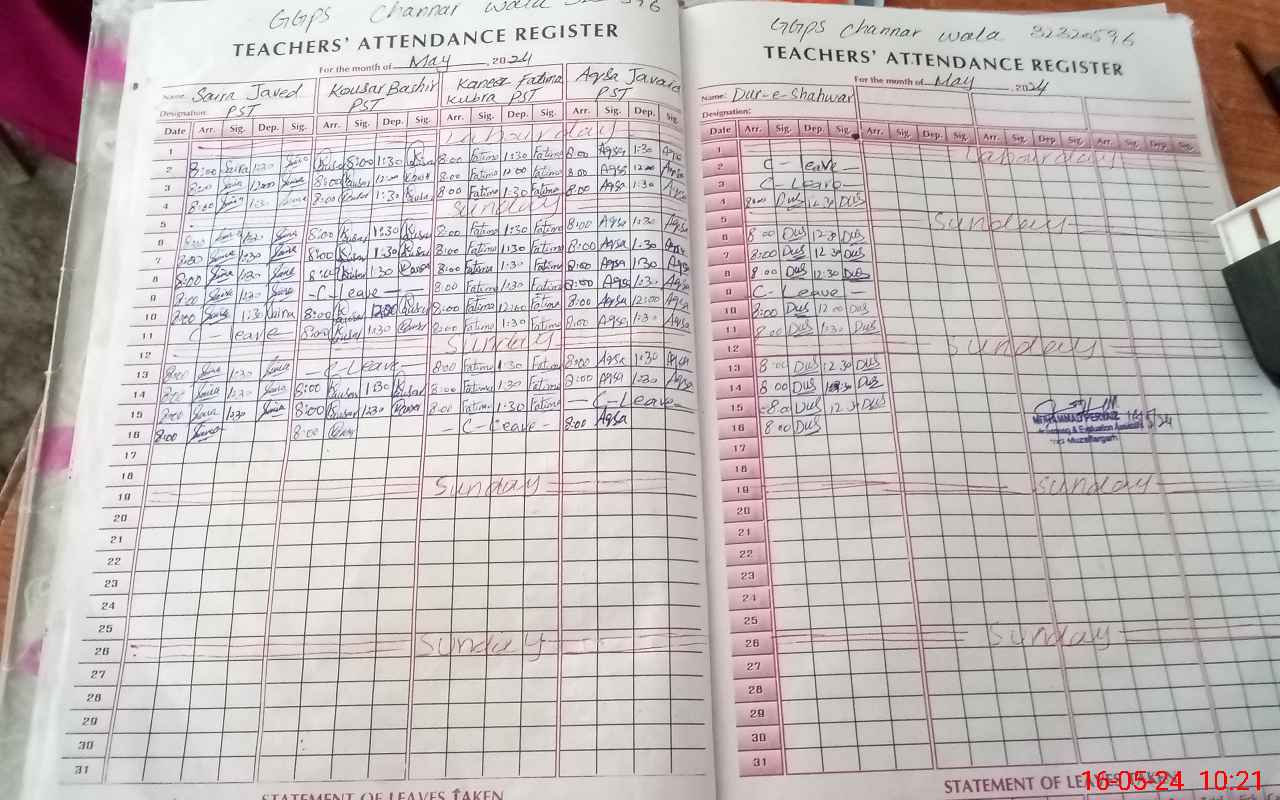 GGPS Channar wala
TEACHERS' ATTENDANCE REGISTER
For the month of May, 2024
Name: Saira Javed Kousar Bashir Kaneez Fatima Kubra Aqsa Javaid
Designation: PST PST PST PST
Date Arr. Sig. Dep. Sig. Arr. Sig. Dep. Sig. Arr. Sig. Dep. Sig. Arr. Sig. Dep. Sig.
1 Labour day
2 8:00 Saira 1:30 8:00 1:30 8:00 Fatima 1:30 Fatima 8:00 Aqsa 1:30 Aqsa
3 8:00 12:00 8:00 12:00 8:00 Fatima 12:00 Fatima 8:00 Aqsa 12:00 Aqsa
4 8:00 1:30 8:00 1:30 8:00 Fatima 1:30 Fatima 8:00 Aqsa 1:30 Aqsa
5 Sunday
6 8:00 1:30 8:00 1:30 8:00 Fatima 1:30 Fatima 8:00 Aqsa 1:30 Aqsa
7 8:00 1:30 8:00 1:30 8:00 Fatima 1:30 Fatima 8:00 Aqsa 1:30 Aqsa
8 8:00 1:30 1:30 8:00 Fatima 1:30 Fatima 8:00 Aqsa 1:30 Aqsa
9 8:00 1:30 - C-Leave - 8:00 Fatima 1:30 Fatima 8:00 Aqsa 1:30 Aqsa
10 8:00 1:30 Saira 8:00 12:00 8:00 Fatima 12:00 Fatima 8:00 Aqsa 12:00 Aqsa
11 C - Leave - 8:00 1:30 8:00 Fatima 1:30 Fatima 8:00 Aqsa 1:30 Aqsa
12 Sunday
13 8:00 1:30 - C-Leave - 8:00 Fatima 1:30 Fatima 8:00 Aqsa 1:30 Aqsa
14 8:00 1:30 8:00 Kousar 1:30 Kousar 8:00 Fatima 1:30 Fatima 8:00 Aqsa 1:30 Aqsa
15 8:00 1:30 8:00 Kousar 1:30 Kousar 8:00 Fatima 1:30 Fatima - C-Leave -
16 8:00 8:00 - C-Leave - 8:00 Aqsa
17
18
19 Sunday
20
21
22
23
24
25
26 Sunday
27
28
29
30
31
STATEMENT OF LEAVES TAKEN
GGPS Channar wala 32320596
TEACHERS' ATTENDANCE REGISTER
For the month of May, 2024
Name: Dur-e-Shahwar
Designation:
Date Arr. Sig. Dep. Sig. Arr. Sig. Dep. Sig. Arr. Sig. Dep. Sig. Arr. Sig. Dep. Sig.
1 Labour day
2 C - Leave -
3 C - Leave -
4 8:00 Dus 12:30 Dus
5 Sunday
6 8:00 Dus 12:30 Dus
7 8:00 Dus 12:30 Dus
8 8:00 Dus 12:30 Dus
9 C - Leave -
10 8:00 Dus 12:00 Dus
11 8:00 Dus 1:30 Dus
12 Sunday
13 8:00 Dus 12:30 Dus
14 8:00 Dus Dus
15 8:00 Dus 12:30 Dus
16 8:00 Dus
MUHAMMAD PERVAIZ 16/5/24
Monitoring & Evaluation Assistant
Muzaffargarh
17
18
19 Sunday
20
21
22
23
24
25
26 Sunday
27
28
29
30
31
STATEMENT OF LEAVES TAKEN
16-05-24 10:21